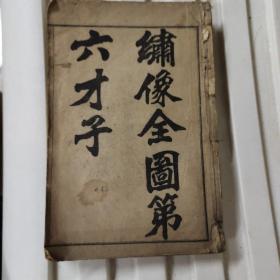 繡像全圖第
六才子